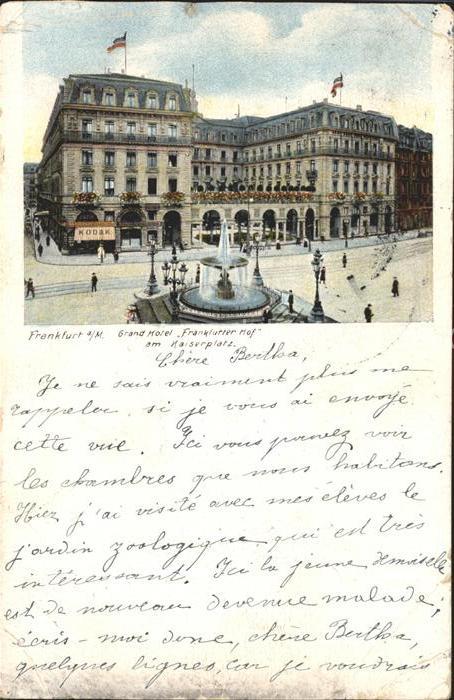 KODAK
Frankfurt a/M. Grand Hotel „Frankfurter Hof"
am Kaiserplatz.
Chère Bertha,
Je ne sais vraiment plus me
rappeler si je vous ai envoyé
cette vue. Ici vous pouvez voir
les chambres que nous habitons.
Hier j'ai visité avec mes élèves le
jardin zoologique, qui est très
intéressant. Ici la jeune demoiselle
est de nouveau devenue malade,
écris-moi donc, chère Bertha,
quelques lignes, car je voudrais